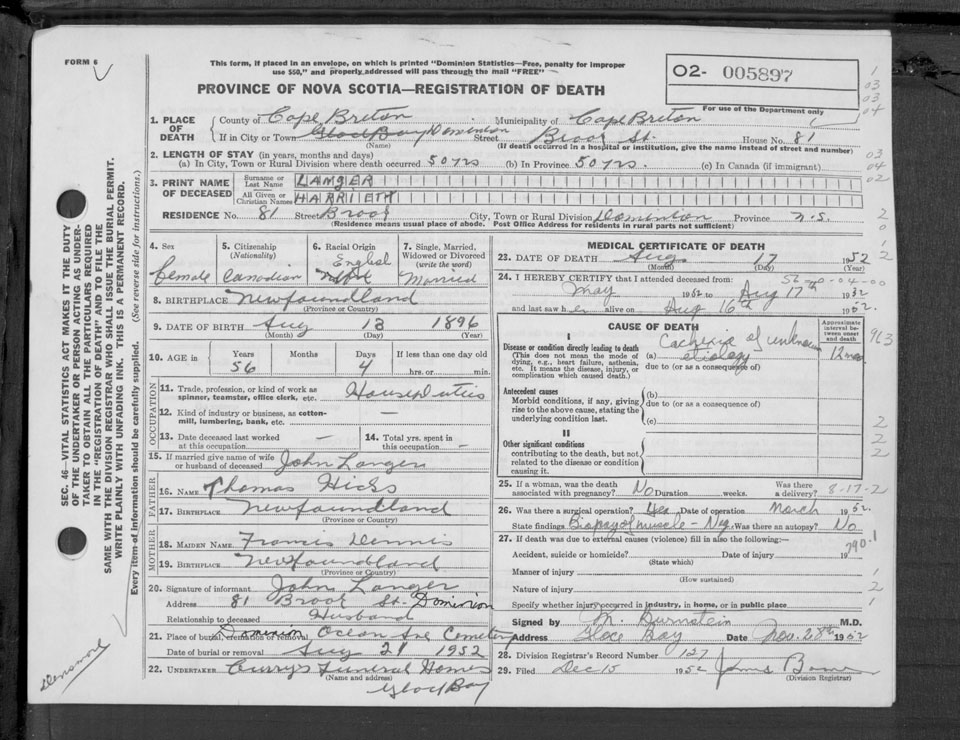 FORM 6
This form, if placed in an envelope, on which is printed "Dominion Statistics—Free, penalty for improper
use $50," and properly addressed will pass through the mail "FREE"
02- 005897
For use of the Department only
PROVINCE OF NOVA SCOTIA—REGISTRATION OF DEATH
1. PLACE OF DEATH County of Cape Breton Municipality of Cape Breton
If in City or Town Glace Bay Dominion Street Brook St. House No. 81
(Name) (If death occurred in a hospital or institution, give the name instead of street and number)
2. LENGTH OF STAY (in years, months and days)
(a) In City, Town or Rural Division where death occurred 50 yrs (b) In Province 50 yrs. (c) In Canada (if immigrant)
3. PRINT NAME OF DECEASED Surname or Last Name LANGER
All Given or Christian Names HARRIETH
RESIDENCE No. 81 Street Brook City, Town or Rural Division Dominion Province N.S.
(Residence means usual place of abode. Post Office Address for residents in rural parts not sufficient)
4. Sex Female
5. Citizenship (Nationality) Canadian
6. Racial Origin English
7. Single, Married, Widowed or Divorced (write the word) Married
8. BIRTHPLACE Newfoundland
(Province or Country)
9. DATE OF BIRTH Aug 13 1896
(Month) (Day) (Year)
10. AGE in Years 56 Months Days 4 If less than one day old
hrs. or min.
OCCUPATION
11. Trade, profession, or kind of work as spinner, teamster, office clerk, etc. House Duties
12. Kind of industry or business, as cotton-mill, lumbering, bank, etc. —
13. Date deceased last worked at this occupation —
14. Total yrs. spent in this occupation —
15. If married give name of wife or husband of deceased John Langer
FATHER
16. NAME Thomas Hicks
17. BIRTHPLACE Newfoundland
(Province or Country)
MOTHER
18. MAIDEN NAME Francis Dennis
19. BIRTHPLACE Newfoundland
(Province or Country)
20. Signature of informant John Langer
Address 81 Brook St. Dominion
Relationship to deceased Husband
21. Place of burial, cremation or removal Dominion Ocean Ave Cemetery
Date of burial or removal Aug 21 1952
22. UNDERTAKER Curry's Funeral Homes
(Name and address) Glace Bay
MEDICAL CERTIFICATE OF DEATH
23. DATE OF DEATH Aug 17 1952
(Month) (Day) (Year)
24. I HEREBY CERTIFY that I attended deceased from:
May 1952 to Aug 17th 1952
and last saw her alive on Aug 16th 1952.
CAUSE OF DEATH
Approximate interval between onset and death
I
Disease or condition directly leading to death
(This does not mean the mode of dying, e.g., heart failure, asthenia, etc. It means the disease, injury, or complication which caused death.)
(a) Cachexia of unknown etiology 12 mos
due to (or as a consequence of)
963
Antecedent causes
Morbid conditions, if any, giving rise to the above cause, stating the underlying condition last.
(b)
due to (or as a consequence of)
(c)
II
Other significant conditions
contributing to the death, but not related to the disease or condition causing it.
25. If a woman, was the death associated with pregnancy? No Duration weeks. Was there a delivery? 8-17-2
26. Was there a surgical operation? Yes Date of operation March 1952.
State findings Biopsy of muscle - Neg. Was there an autopsy? No
27. If death was due to external causes (violence) fill in also the following:
790.1
Accident, suicide or homicide? Date of injury 19
(State which)
Manner of injury
(How sustained)
Nature of injury
Specify whether injury occurred in industry, in home, or in public place
Signed by M. Burnstein M.D.
Address Glace Bay Date Nov. 28th 1952
28. Division Registrar's Record Number 127
29. Filed Dec 15 1952
(Division Registrar)
SEC. 46—VITAL STATISTICS ACT MAKES IT THE DUTY
OF THE UNDERTAKER OR PERSON ACTING AS UNDER-
TAKER TO OBTAIN ALL THE PARTICULARS REQUIRED
IN THE "REGISTRATION OF DEATH" AND TO FILE THE
SAME WITH THE DIVISION REGISTRAR WHO SHALL ISSUE THE BURIAL PERMIT.
WRITE PLAINLY WITH UNFADING INK. THIS IS A PERMANENT RECORD.
Every item of information should be carefully supplied. (See reverse side for instructions.)